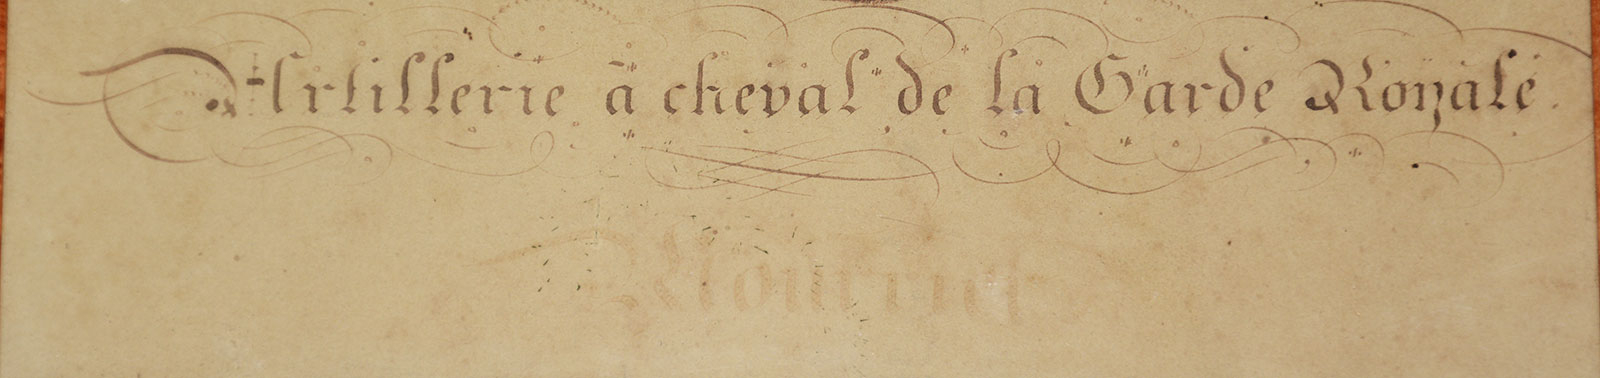 Artillerie à cheval de la Garde Royale.